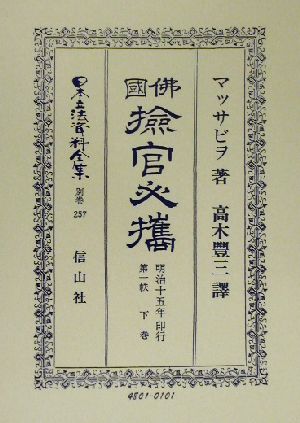 マッサビヲ 著
高木豐三 譯
佛國
撿官必攜
明治十五年 印行
第一帙 下巻
日本立法資料全集
別巻
257
信山社
4801-0101